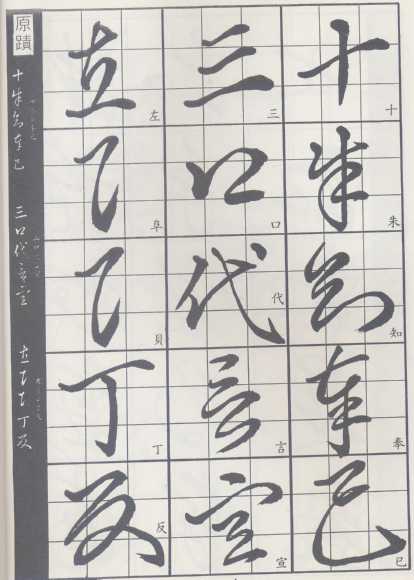 十朱知奉巳
三口代言宣
左阜貝丁反
原蹟
十朱知奉巳 三口代言宣 左阜貝丁反